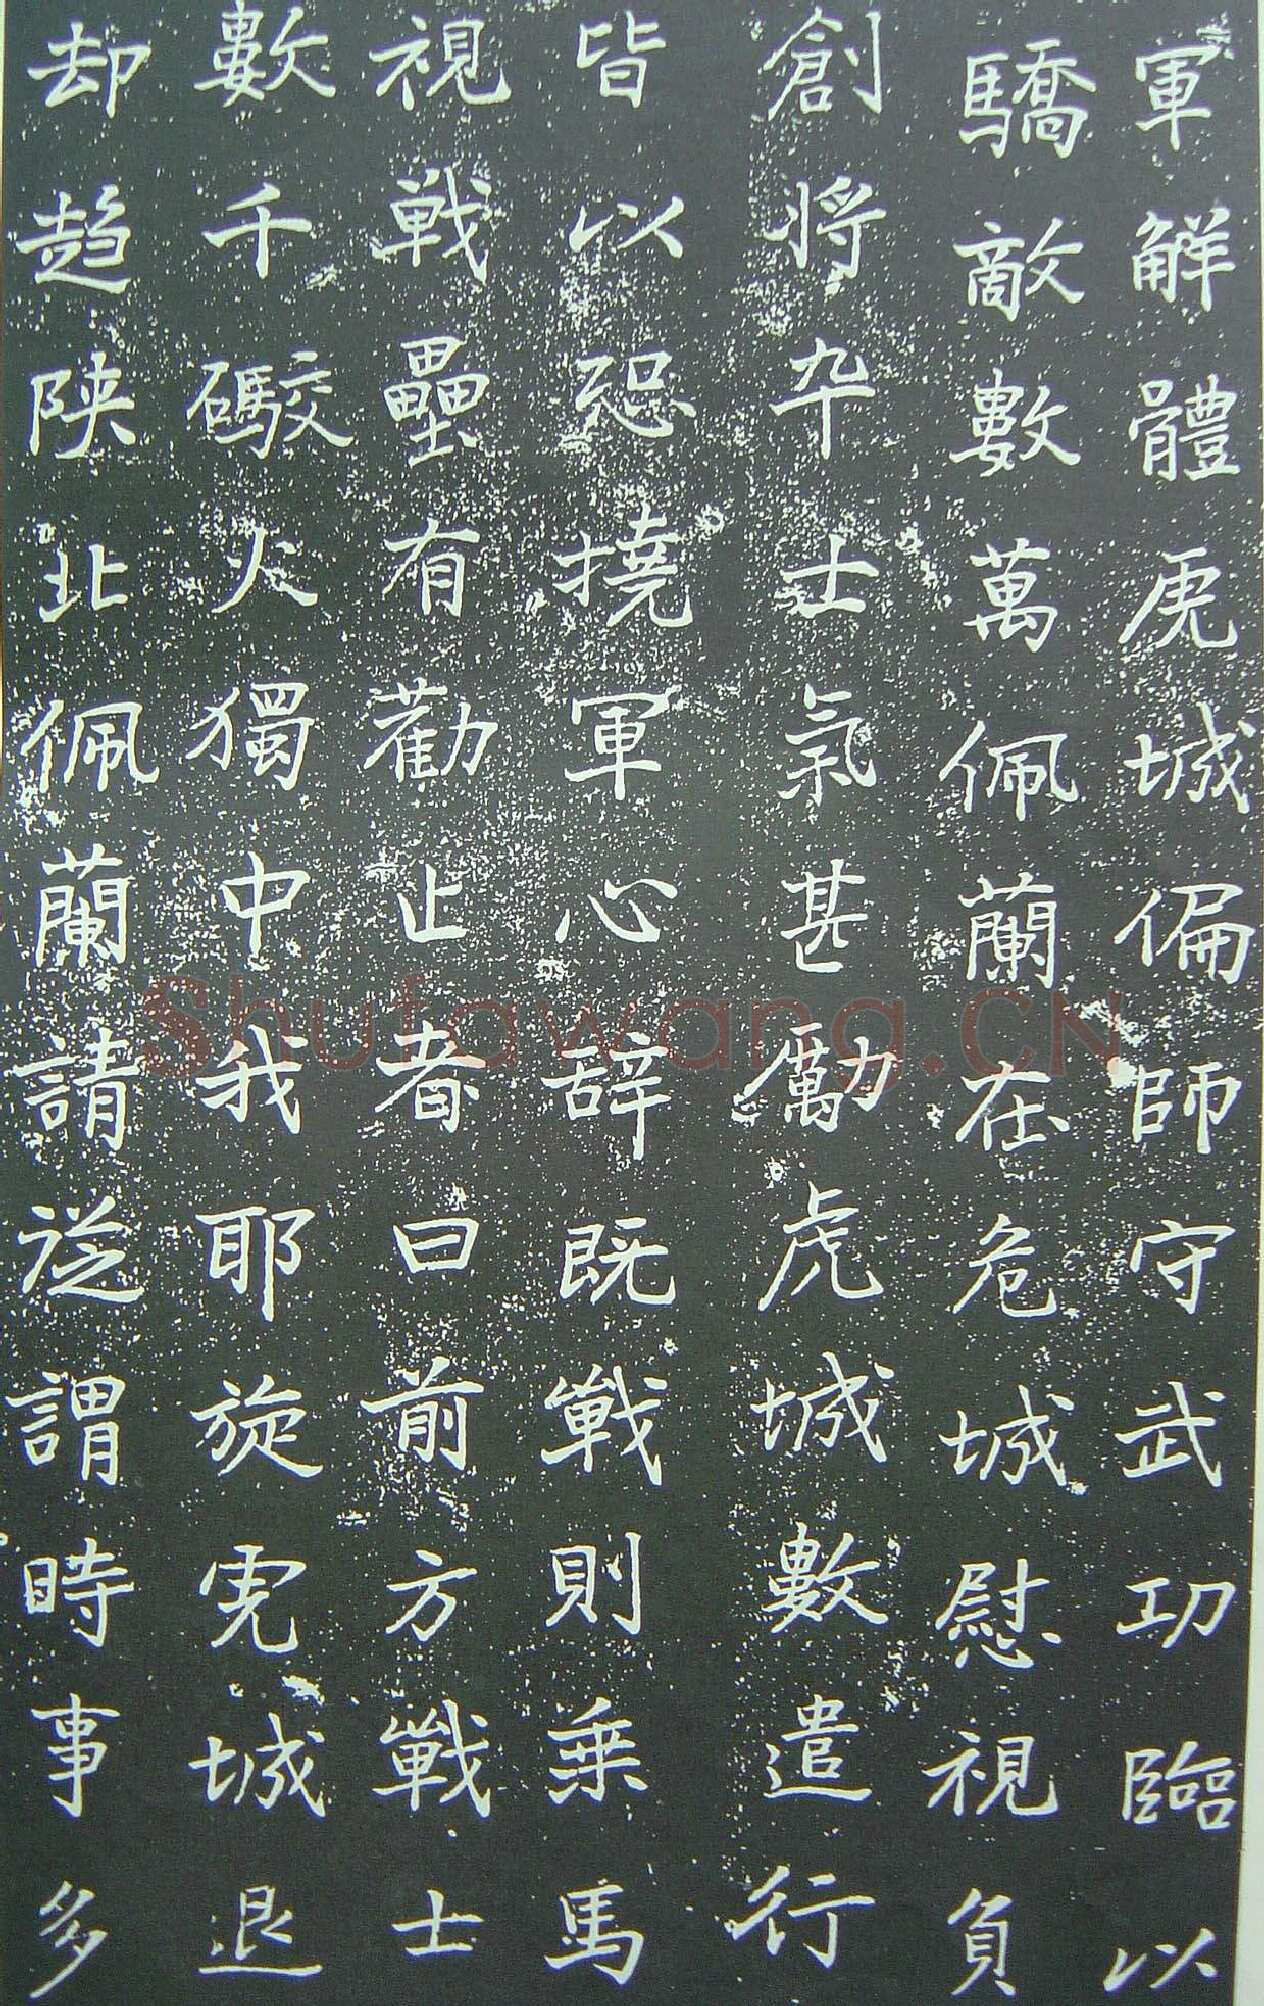 軍解體虎城偏師守武功臨以
驕敵數萬佩蘭在危城慰視負
創將卒士氣甚勵虎城數遣行
皆以恐撓軍心辞既戰則乘馬
視戰壘有勸止者曰前方戰士
數千礮火獨中我耶旋虎城退
却趋陝北佩蘭請從謂時事多
Shufawang.CN